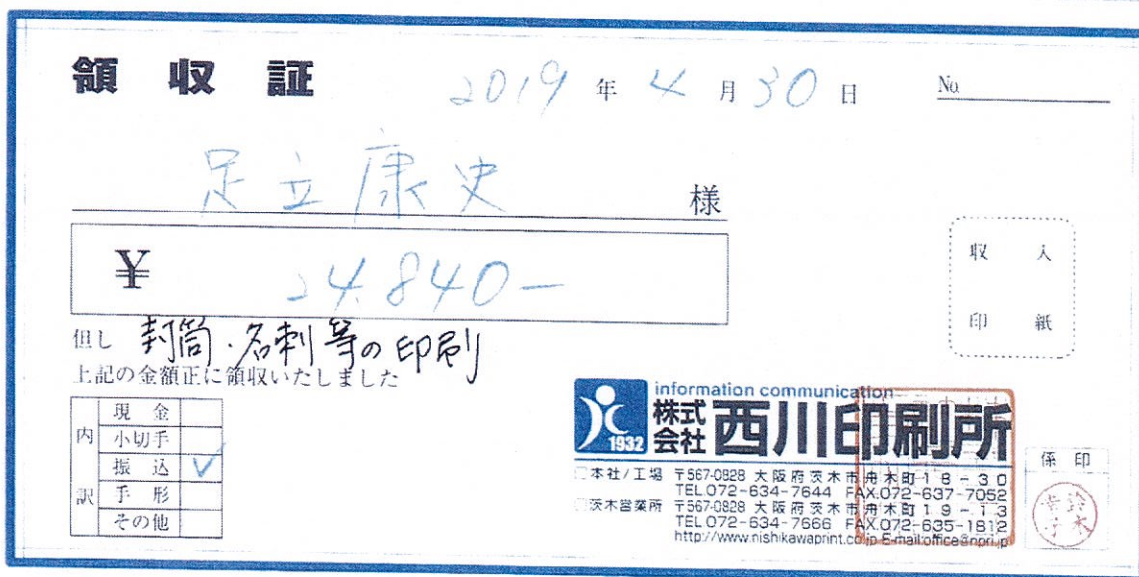 領収証
2019年4月30日
No.
足立康史 様
¥ 24,840—
但し 封筒・名刺等の印刷
上記の金額正に領収いたしました
収入
印紙
内訳
現金
小切手
振込 ✓
手形
その他
information communication
1932
株式会社 西川印刷所
□本社/工場 〒567-0828 大阪府茨木市舟木町18-30
TEL.072-634-7644 FAX.072-637-7052
□茨木営業所 〒567-0828 大阪府茨木市舟木町19-13
TEL.072-634-7666 FAX.072-635-1812
http://www.nishikawaprint.co.jp E-mail:office@npri.jp
係印
鈴木
幸子